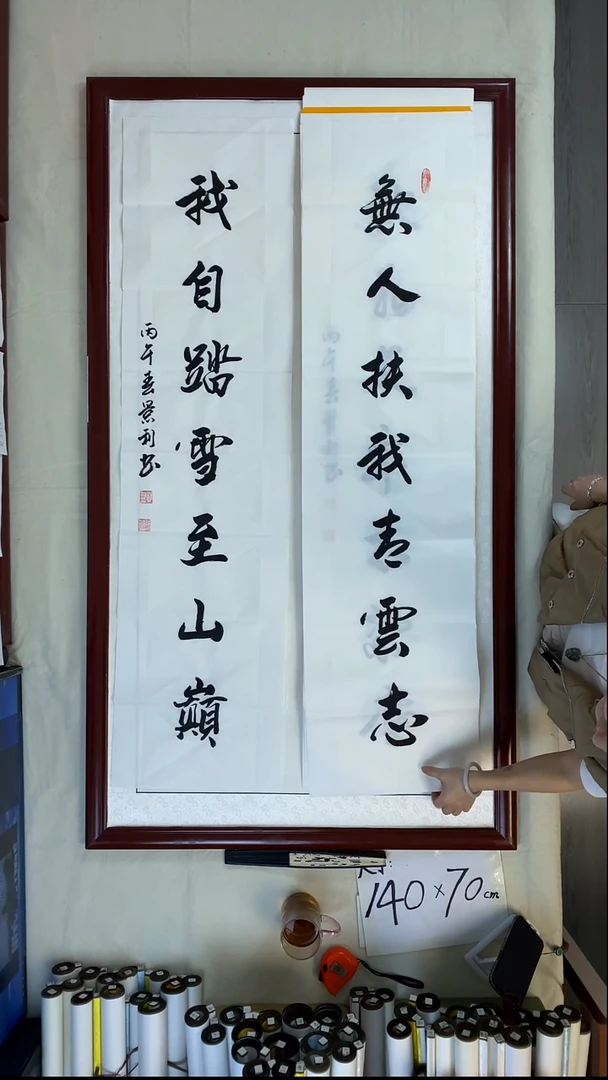 無人扶我青雲志
我自踏雪至山巔
丙午春景利书
140×70cm